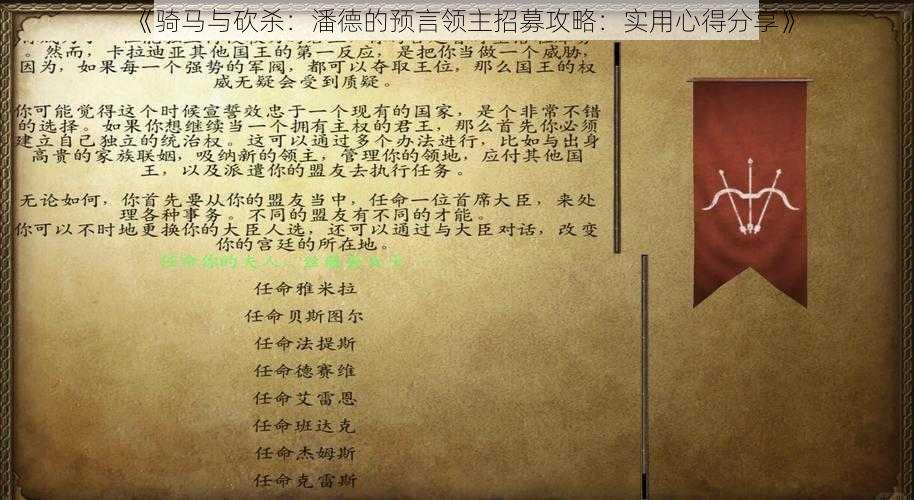 《骑马与砍杀：潘德的预言领主招募攻略：实用心得分享》
。然而，卡拉迪亚其他国王的第一反应，是把你当做一个威胁，
因为，如果每一个强势的军阀，都可以夺取王位，那么国王的权
威无疑会受到质疑。
你可能觉得这个时候宣誓效忠于一个现有的国家，是个非常不错
的选择。如果你想继续当一个拥有主权的君王，那么首先你必须
建立自己独立的统治权。这可以通过多个办法进行，比如与出身
高贵的家族联姻，吸纳新的领主，管理你的领地，应付其他国
王，以及派遣你的盟友去执行任务。
无论如何，你首先要从你的盟友当中，任命一位首席大臣，来处
理各种事务。不同的盟友有不同的才能。
你可以不时地更换你的大臣人选，还可以通过与大臣对话，改变
你的宫廷的所在地。
任命你的夫人，
任命雅米拉
任命贝斯图尔
任命法提斯
任命德赛维
任命艾雷恩
任命班达克
任命杰姆斯
任命克雷斯